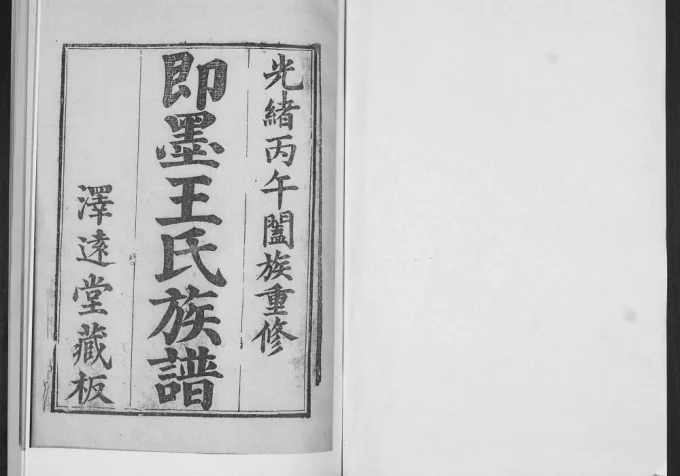 光緒丙午闔族重修
即墨王氏族譜
澤遠堂藏板